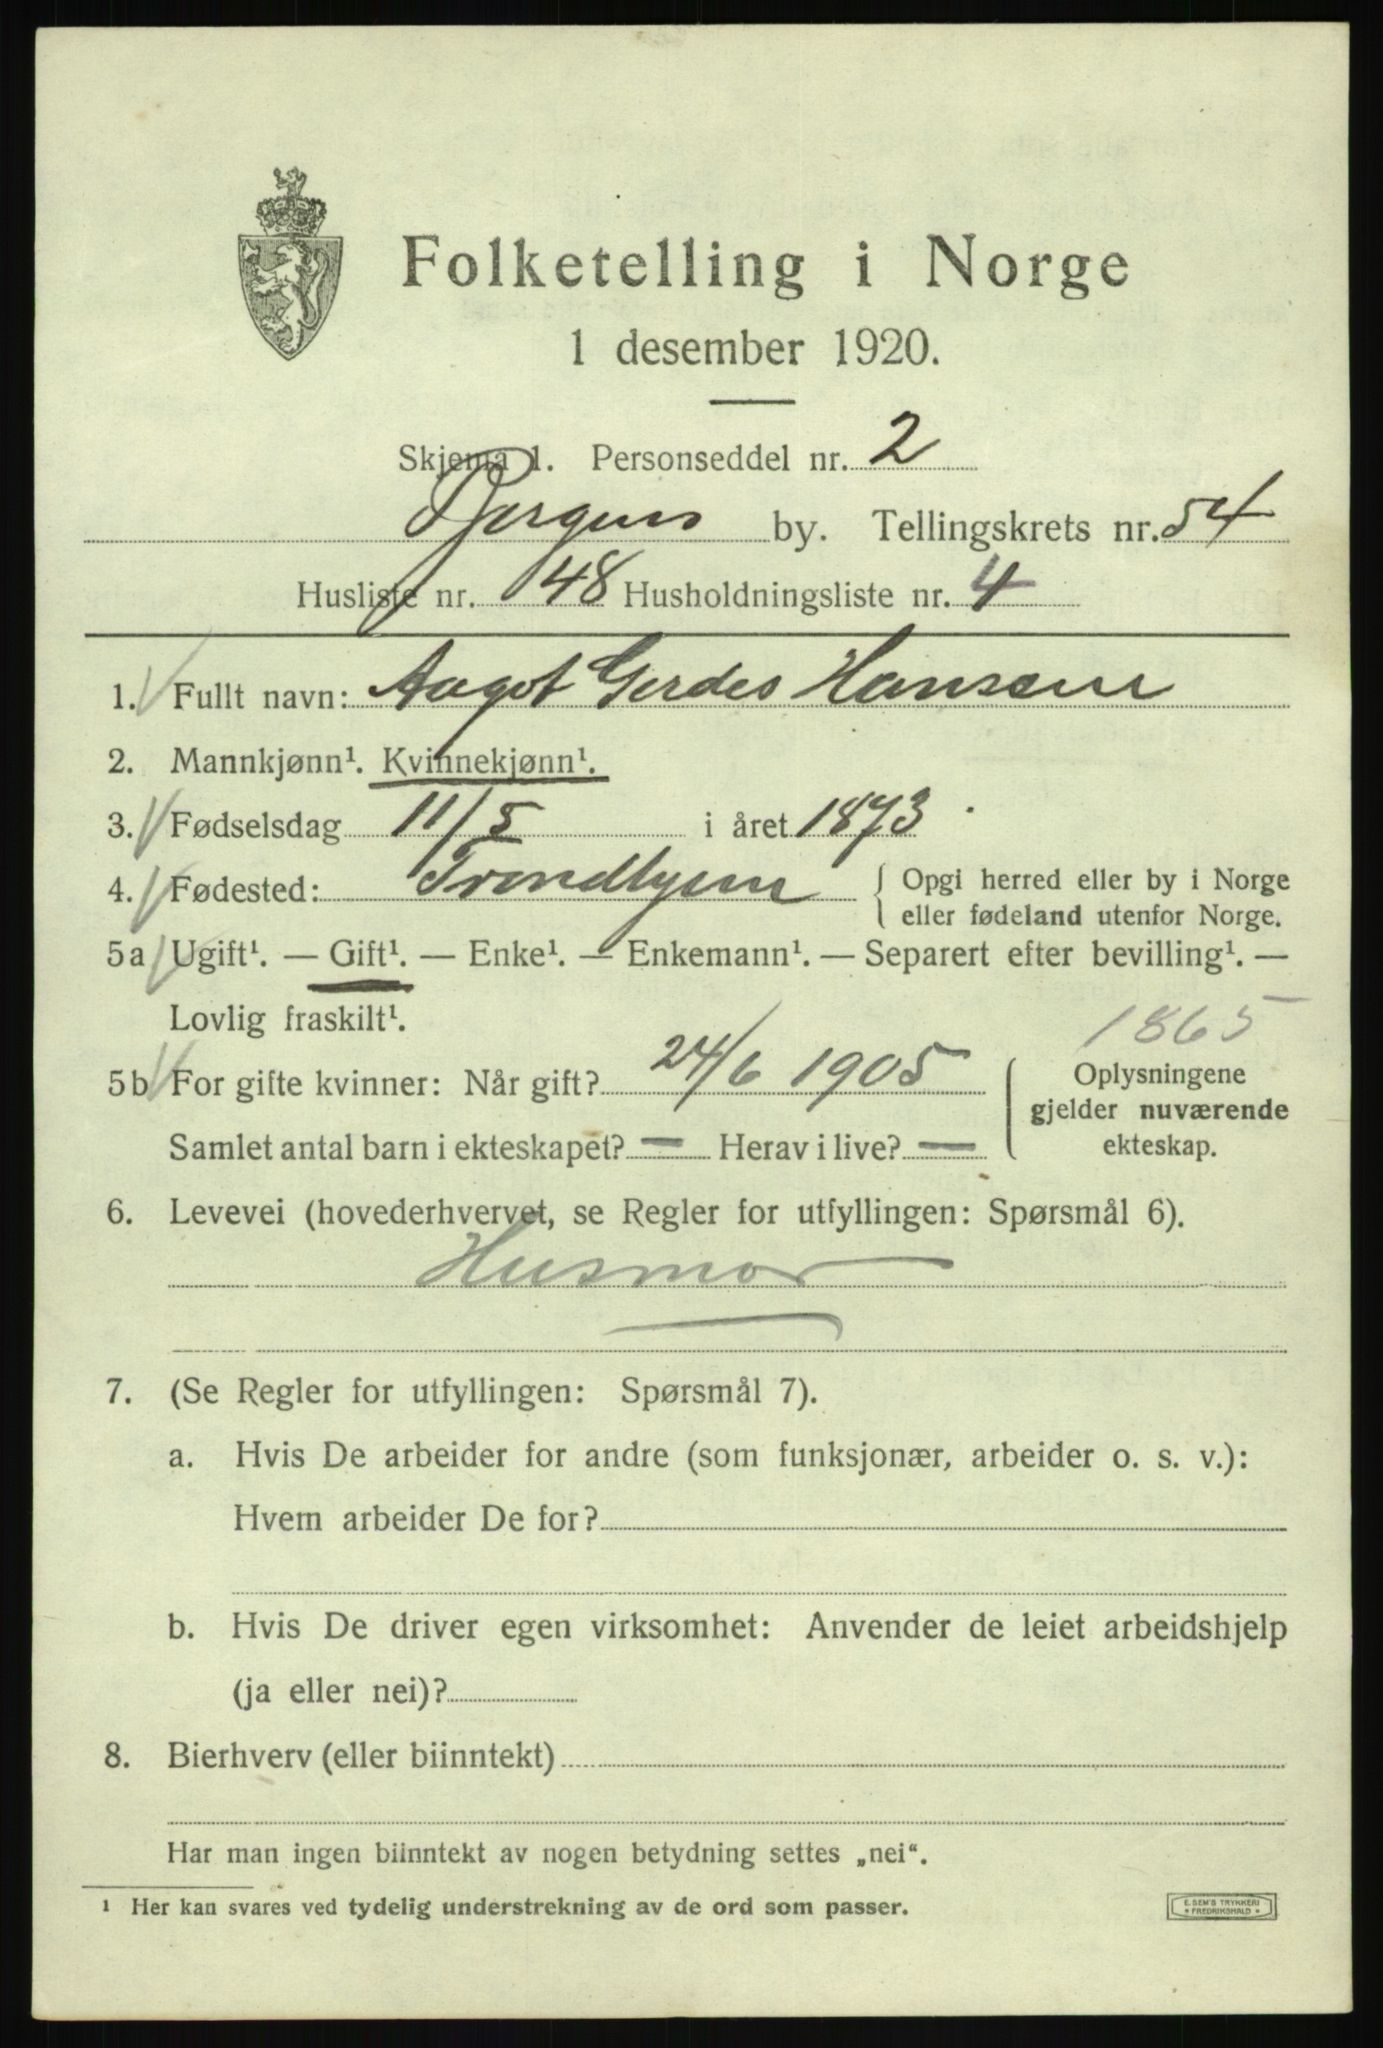 Folketelling i Norge
1 desember 1920.
Skjema 1. Personseddel nr. 2
Bergens by. Tellingskrets nr. 54
Husliste nr. 148 Husholdningsliste nr. 4
1. Fullt navn: Aagot Gerdes Hansen
2. Mannkjønn¹. Kvinnekjønn¹.
3. Fødselsdag 11/5 i året 1873
4. Fødested: Trondhjem { Opgi herred eller by i Norge
eller fødeland utenfor Norge.
5a Ugift¹. — Gift¹. — Enke¹. — Enkemann¹. — Separert efter bevilling¹. —
Lovlig fraskilt¹.
1865
5b For gifte kvinner: Når gift? 24/6 1905
Samlet antal barn i ekteskapet? — Herav i live? —
Oplysningene
gjelder nuværende
ekteskap.
6. Levevei (hovederhvervet, se Regler for utfyllingen: Spørsmål 6).
Husmor
7. (Se Regler for utfyllingen: Spørsmål 7).
a. Hvis De arbeider for andre (som funksjonær, arbeider o. s. v.):
Hvem arbeider De for?
b. Hvis De driver egen virksomhet: Anvender de leiet arbeidshjelp
(ja eller nei)?
8. Bierhverv (eller biinntekt)
Har man ingen biinntekt av nogen betydning settes „nei“.
¹ Her kan svares ved tydelig understrekning av de ord som passer.
E. SEM'S TRYKKERI
* FREDRIKSHALD *